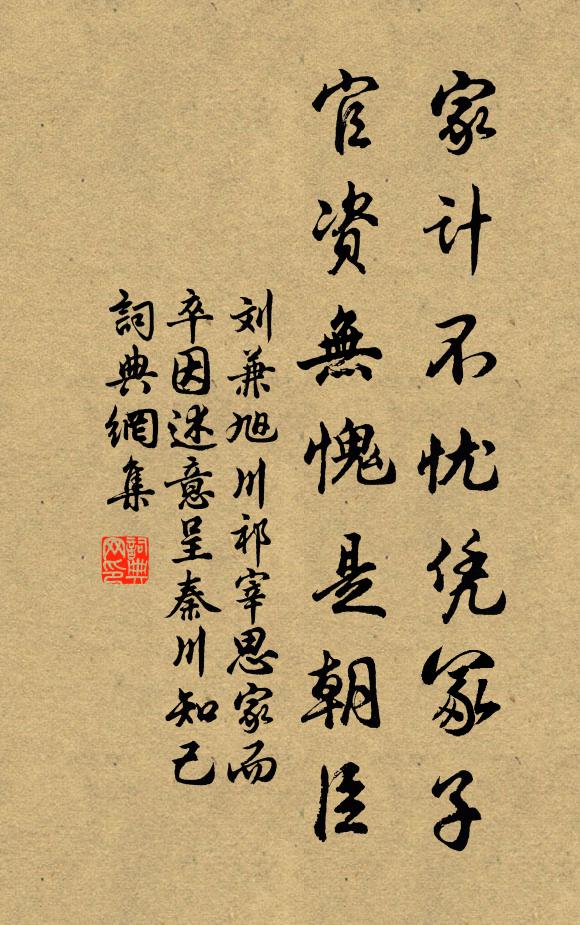 家计不忧凭冢子
官资無愧是朝臣
刘兼旭川祁宰思家而
卒因述意呈秦川知己
詞典網集
詞典
网印